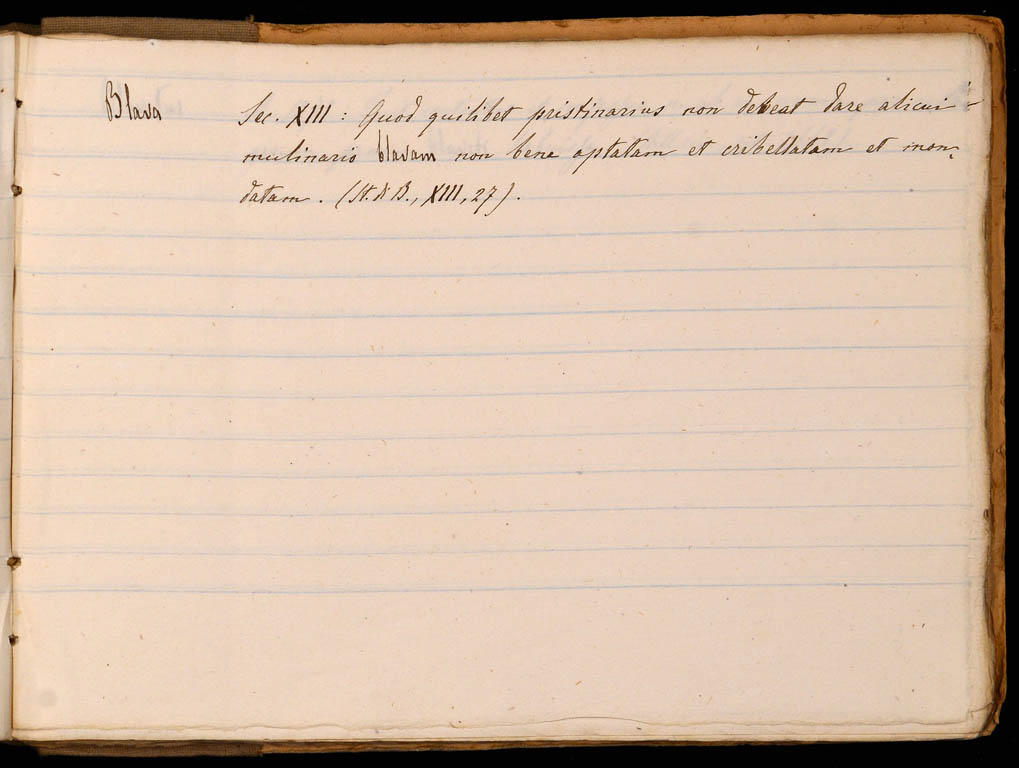 Blava
Sec. XIII : Quod quilibet pristinarius non debeat dare alicui
mulinario blavam non bene aptatam et cribellatam et mon-
datam. (St. d B., XIII, 27).